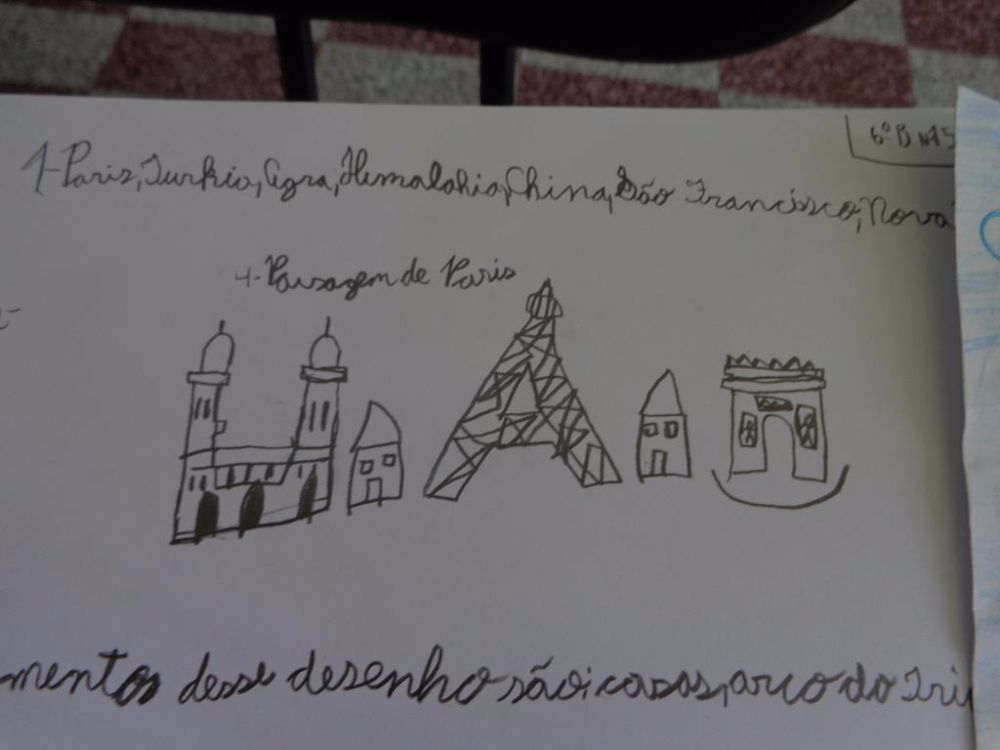 6º B Nº15
1-Paris, Turkia, Agra, Himalahia, China, São Francisco, Nova
4-Paisagem de Paris
mentos desse desenho são: casas, arco do Tri